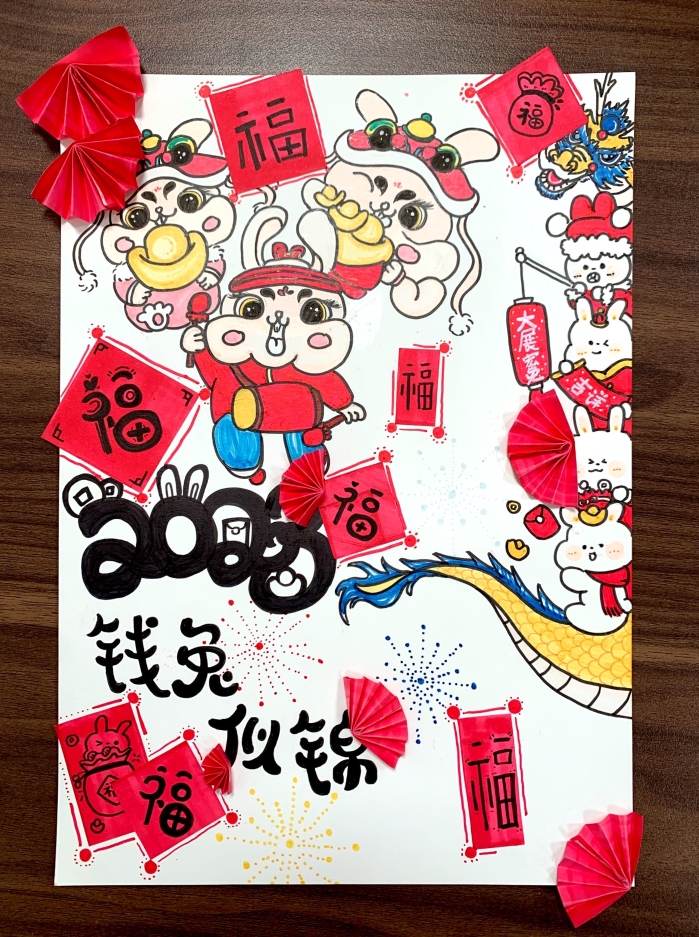 福
福
大展
吉祥
福
福
福
2023
钱兔
似锦
福
福